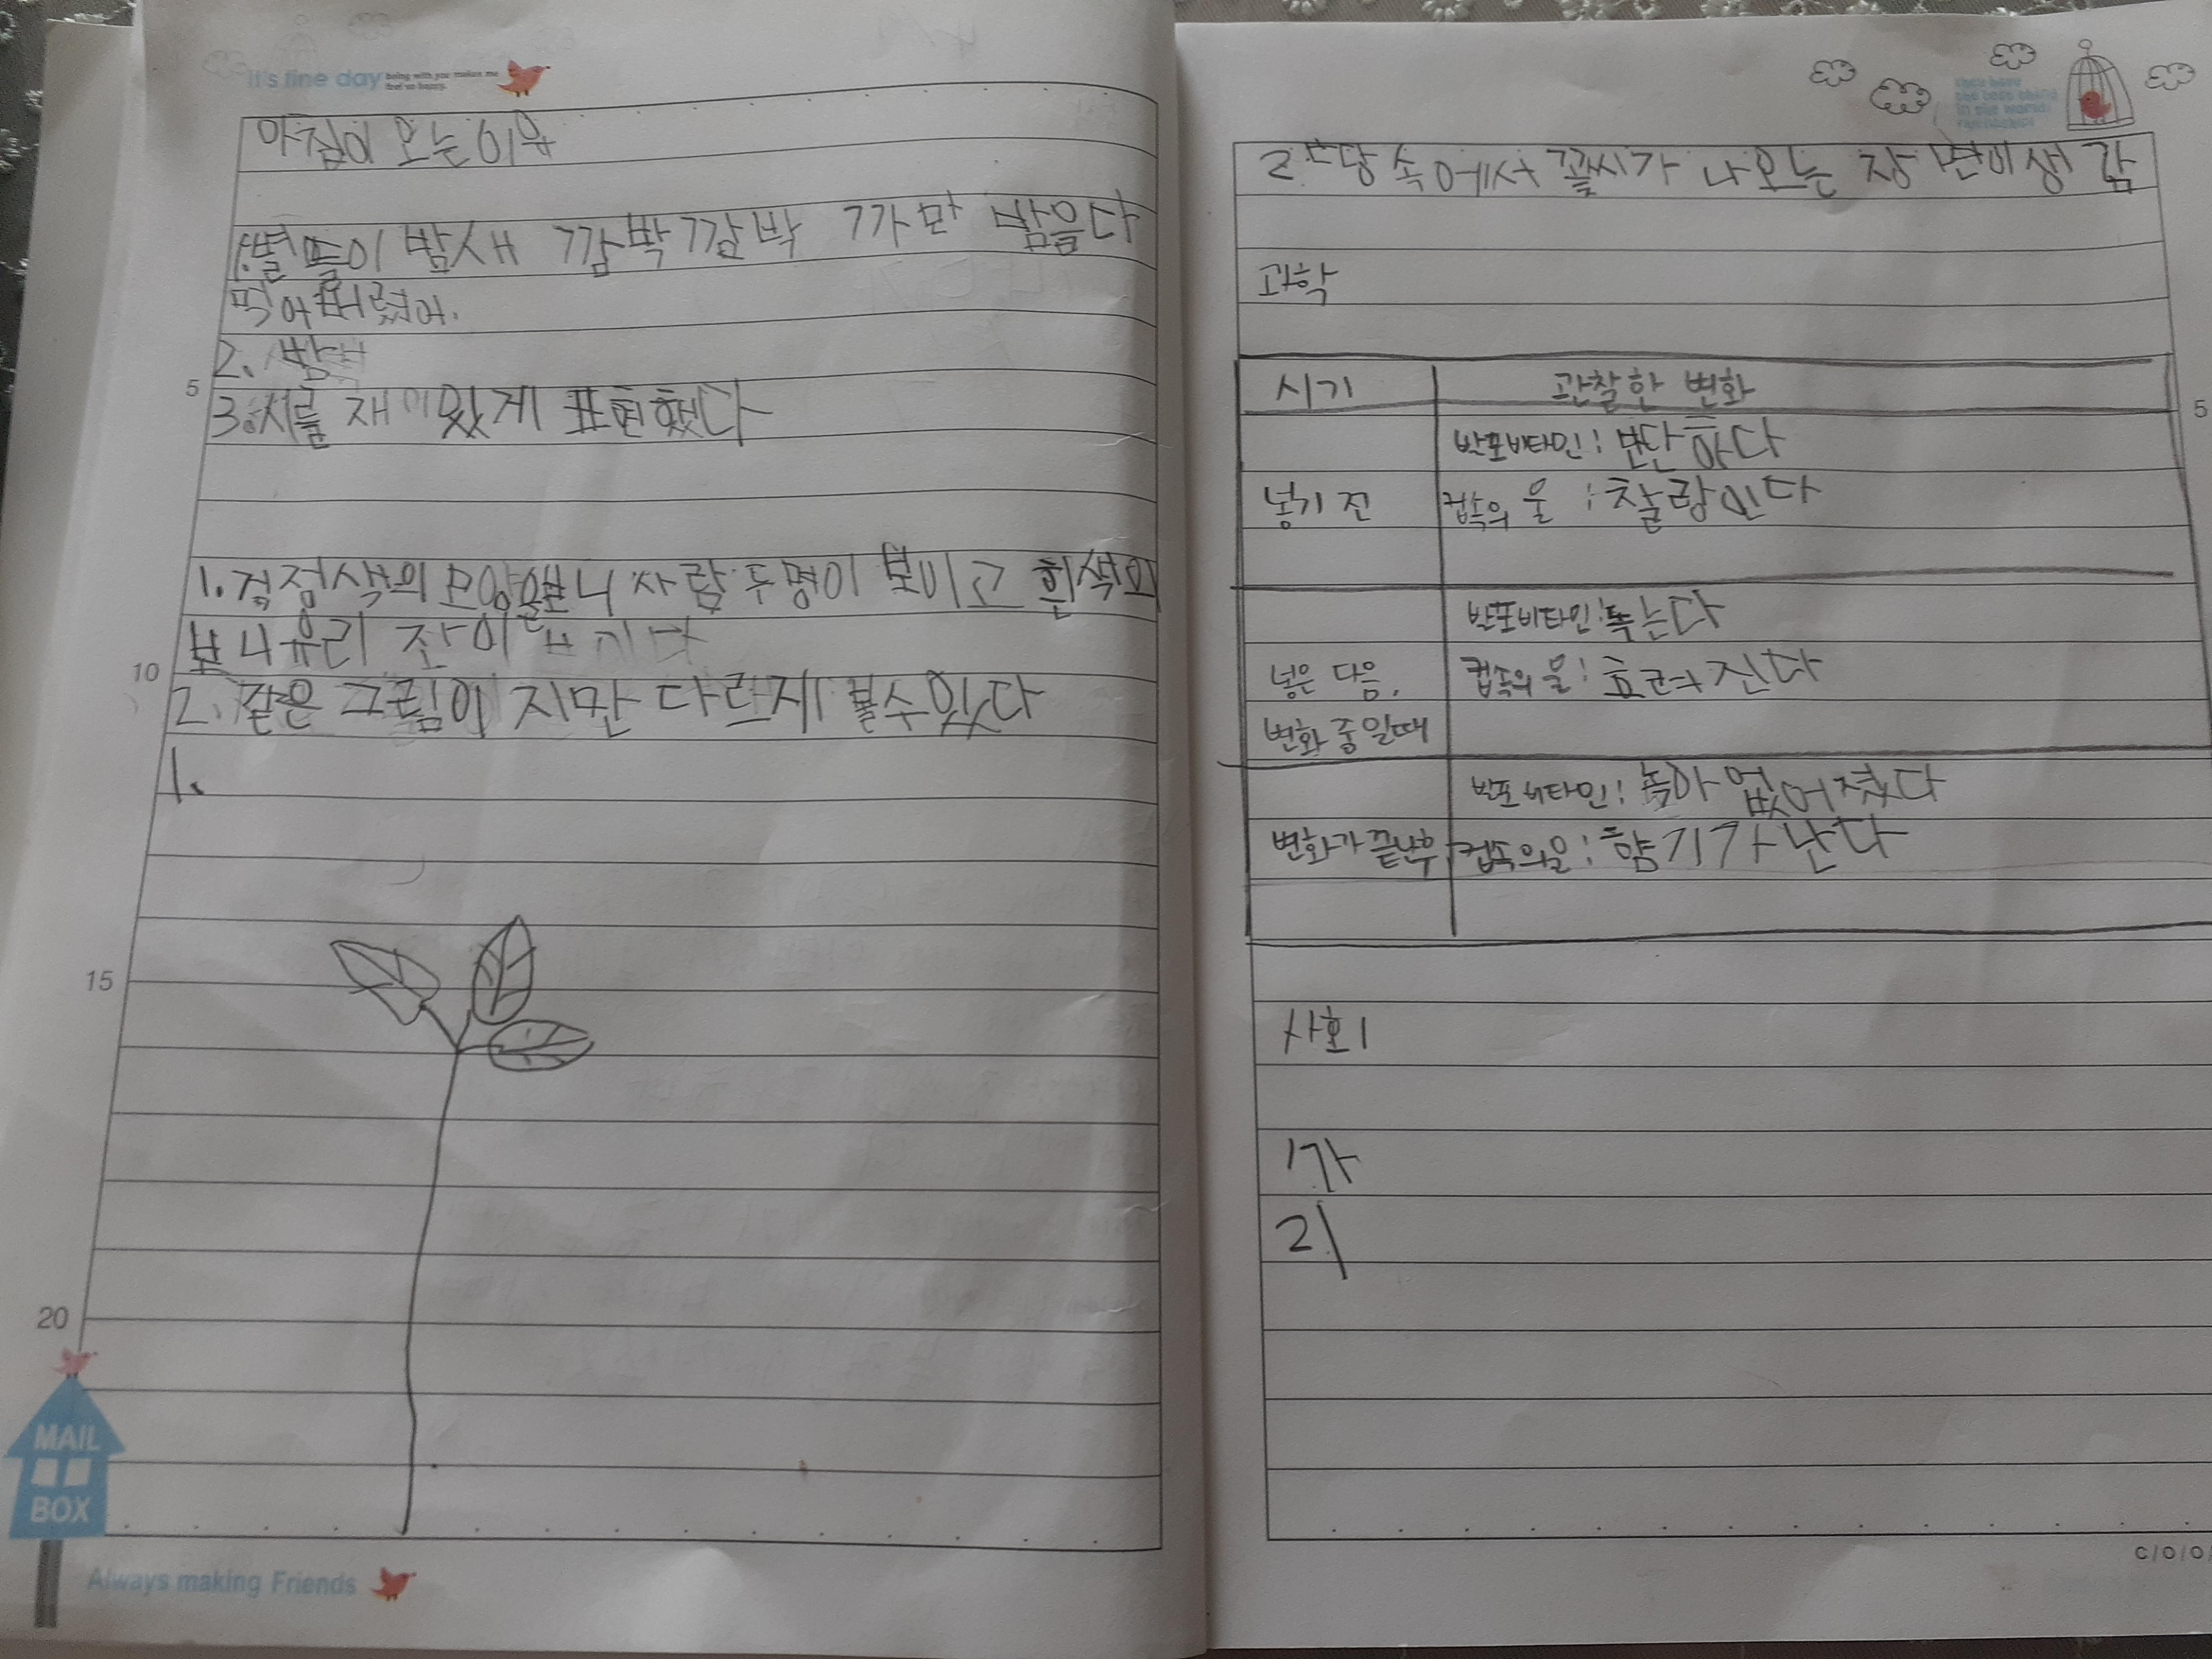 it's fine day being with you makes me feel so happy.
아침이 오는 이유
1.별들이 밤새 깜박깜박 까만 밤을다
먹어버렸어.
2. 밤
5
3.시를 재미있게 표현했다
1. 검정색의 모양을보니 사람 두명이 보이고 흰색의
보니유리 잔이 보인다
10
2. 같은 그림이 지만 다르게 볼수있다
1.
15
20
MAIL
BOX
Always making Friends
2. 땅 속에서 꽃씨가 나오는 장면이생 각
과학
시기 관찰한 변화
5
발포비타민: 단단하다
넣기 전 컵속의 물 : 찰랑인다
발포비타민: 녹는다
넣은 다음, 컵속의 물: 흐려진다
변화 중일때
발포비타민: 녹아 없어졌다
변화가 끝난후 컵속의물: 향기가 난다
사회
1가
2